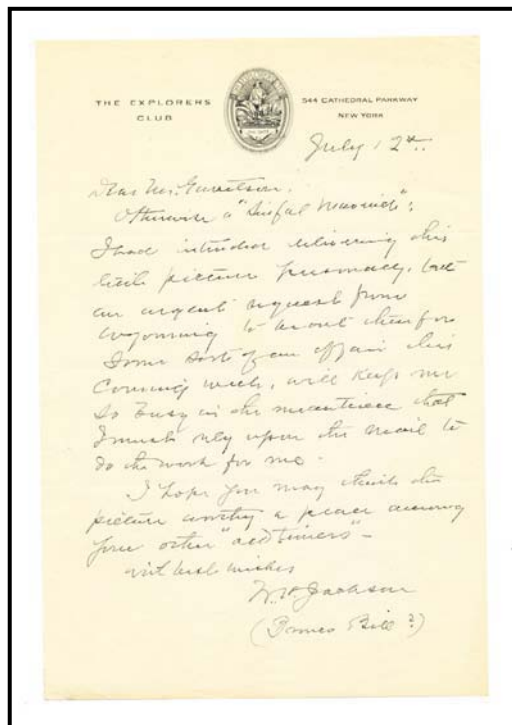 THE EXPLORERS
CLUB
544 CATHEDRAL PARKWAY
NEW YORK
July 12th.
Dear Mr.
Otherwise a "Sinful Maverick":
I had intended delivering this
little picture personally, but
an urgent request from
Wyoming to be out there for
Some sort of an affair this
Coming week, will keep me
So busy in the meantime that
I must rely upon the mail to
do the work for me.
I hope you may think the
picture worthy a place among
your other "old timers" -
with best wishes
W.H. Jackson
( Bill ?)